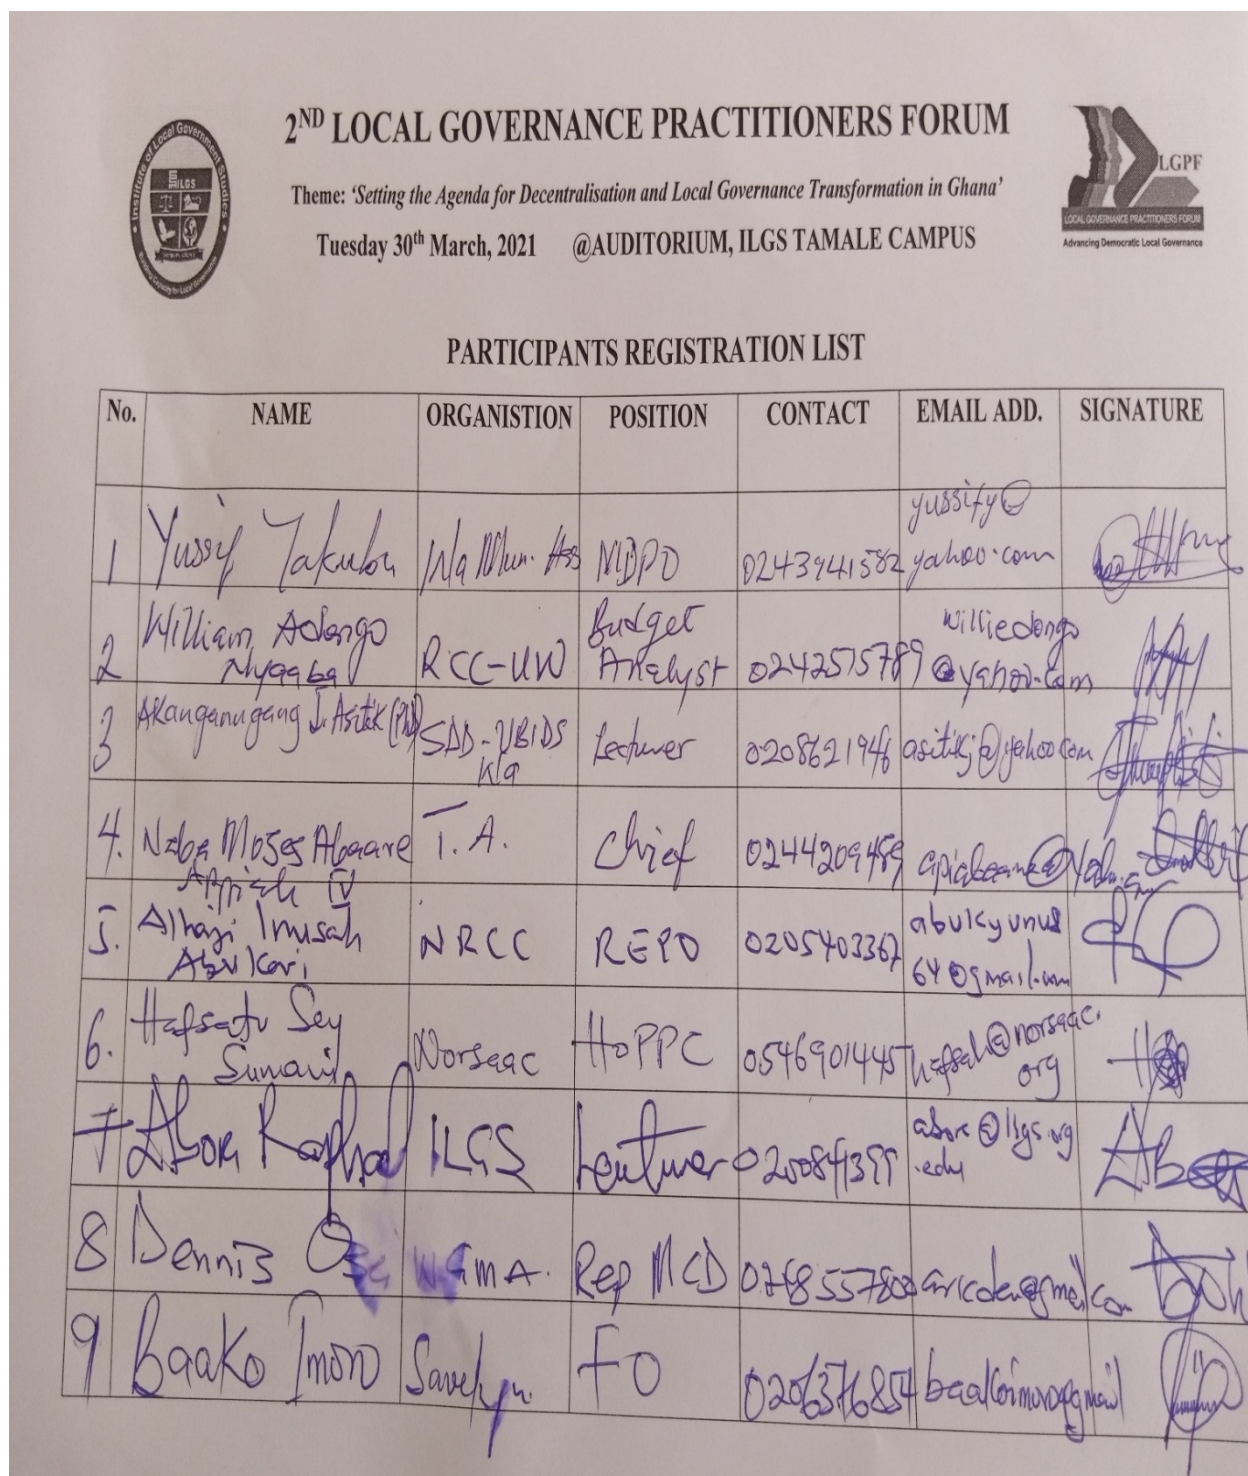 2ND LOCAL GOVERNANCE PRACTITIONERS FORUM
Theme: 'Setting the Agenda for Decentralisation and Local Governance Transformation in Ghana'
Tuesday 30th March, 2021 @AUDITORIUM, ILGS TAMALE CAMPUS
Institute of Local Government Studies
ILGS
LGPF
LOCAL GOVERNANCE PRACTITIONERS FORUM
Advancing Democratic Local Governance
PARTICIPANTS REGISTRATION LIST
No. NAME ORGANISTION POSITION CONTACT EMAIL ADD. SIGNATURE
1 Yussif Yakubu Wa Mun. Ass MBPO 0243941582 yussify@
yahoo.com
2 William Adongo
Nyaaba RCC-UW Budget
Analyst 0242575789 williedongo
@yahoo.com
3 Akanganngang J. Asitik (PhD) SDD-UBIDS Lecturer 0208621946 asitikj@yahoo.com
4. Naba Moses Abaare
Appiah IV T.A. Chief 0244209489
5. Alhaji Imusah
Abukari NRCC REPO 0205403367 abukyunus
64@gmail.com
6. Hafsatu Sey
Sumani Norsaac HoPPC 0546901445 hafsah@norsaac.
org
7 Abore Raphael ILGS Lecturer abore@ilgs.org
.edu
8 Dennis Rep MCD
9 Baako Imoro FO 0206376854 baakoimoro@gmail